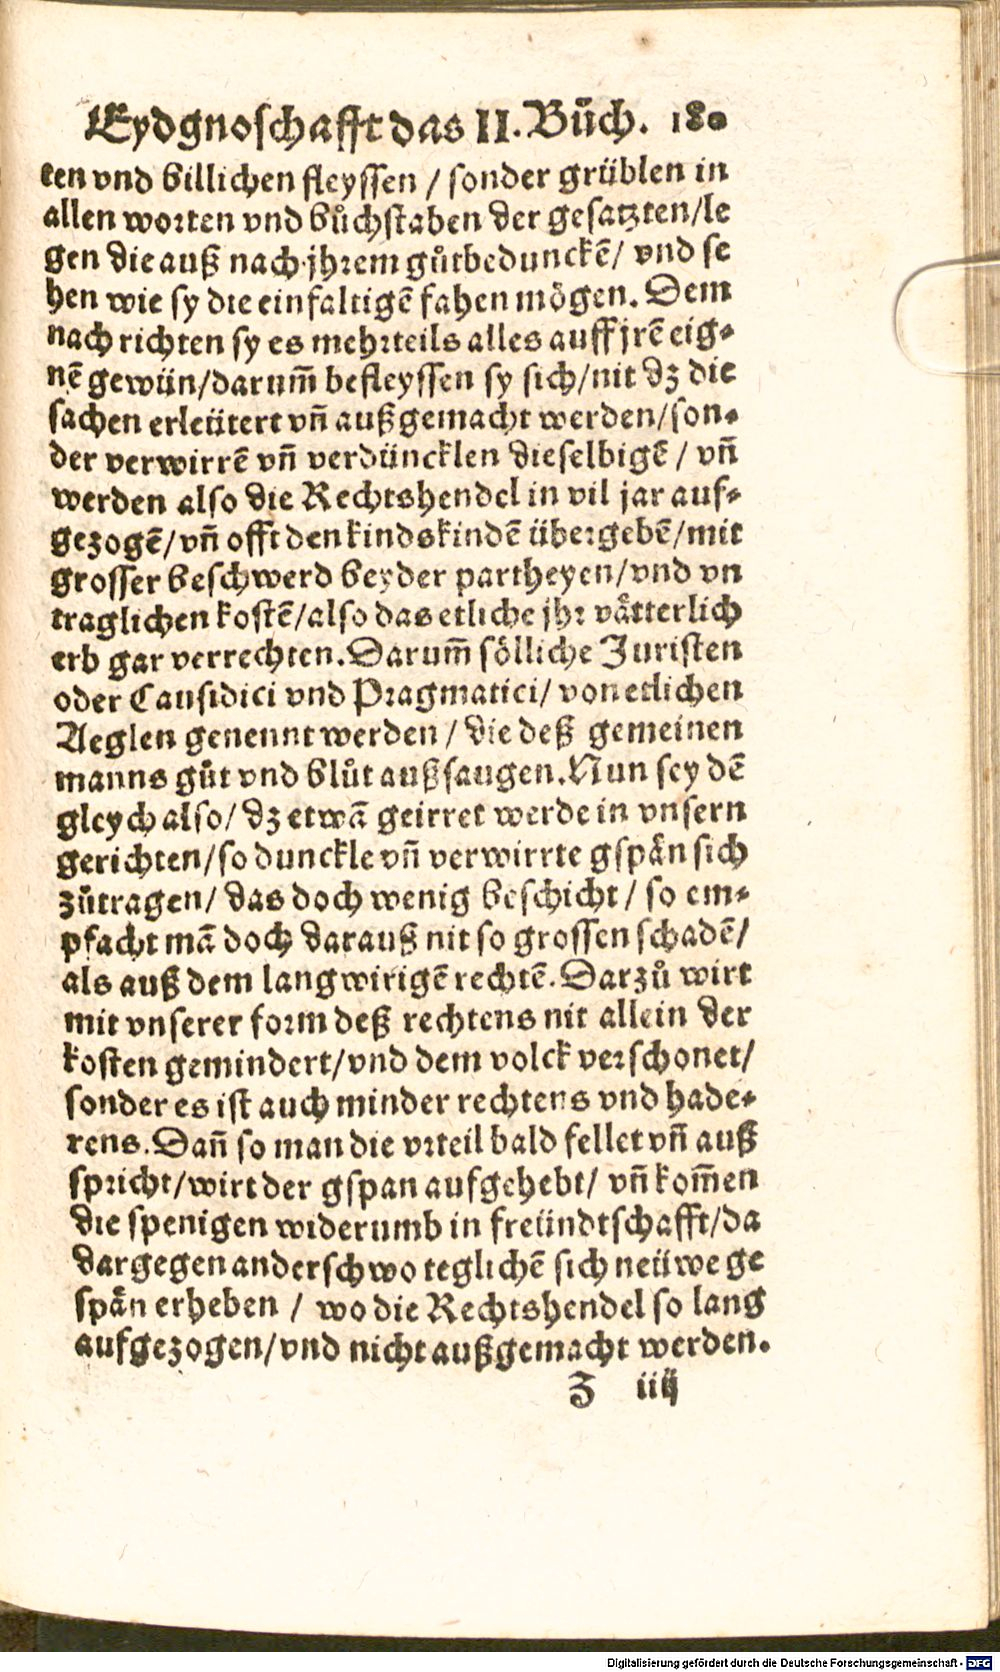 Eydgnoschafft das II. Bůch. 180
ten vnd billichen fleyssen / sonder grüblen in
allen worten vnd bůchstaben der gesatzten/le
gen die auß nach jhrem gůtbedunckē/ vnd se
hen wie sy die einfaltigē fahen mögen. Dem
nach richten sy es mehrteils alles auff jrē eig-
nē gewün/darum̄ befleyssen sy sich/nit dz die
sachen erleütert vn̄ außgemacht werden/son-
der verwirrē vn̄ verdüncklen dieselbigē / vn̄
werden also die Rechtshendel in vil jar auf-
gezogē/vn̄ offt den kindskindē übergebē/mit
grosser beschwerd beyder partheyen/vnd vn
traglichen kostē/also das etliche jhr vätterlich
erb gar verrechten. Darum̄ sölliche Juristen
oder Causidici vnd Pragmatici/ von etlichen
Aeglen genennt werden / die deß gemeinen
manns gůt vnd blůt außsaugen. Nun sey dē
gleych also/ dz etwā geirret werde in vnsern
gerichten/so dunckle vn̄ verwirrte gspän sich
zůtragen/ das doch wenig beschicht / so em-
pfacht mā doch darauß nit so grossen schadē/
als auß dem langwirigē rechtē. Darzů wirt
mit vnserer form deß rechtens nit allein der
kosten gemindert/vnd dem volck verschonet/
sonder es ist auch minder rechtens vnd hade-
rens. Dan̄ so man die vrteil bald fellet vn̄ auß
spricht/wirt der gspan aufgehebt/ vn̄ kom̄en
die spenigen widerumb in freündtschafft/da
dargegen anderschwo teglichē sich neüwe ge
spän erheben / wo die Rechtshendel so lang
aufgezogen/vnd nicht außgemacht werden.
Z iiij
Digitalisierung gefördert durch die Deutsche Forschungsgemeinschaft - DFG